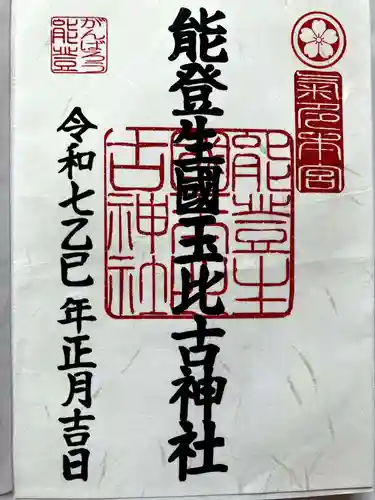 氣多本宮
能登生國玉比古神社
能登生國玉比古神社
がんばろう
能登
令和七乙巳年正月吉日